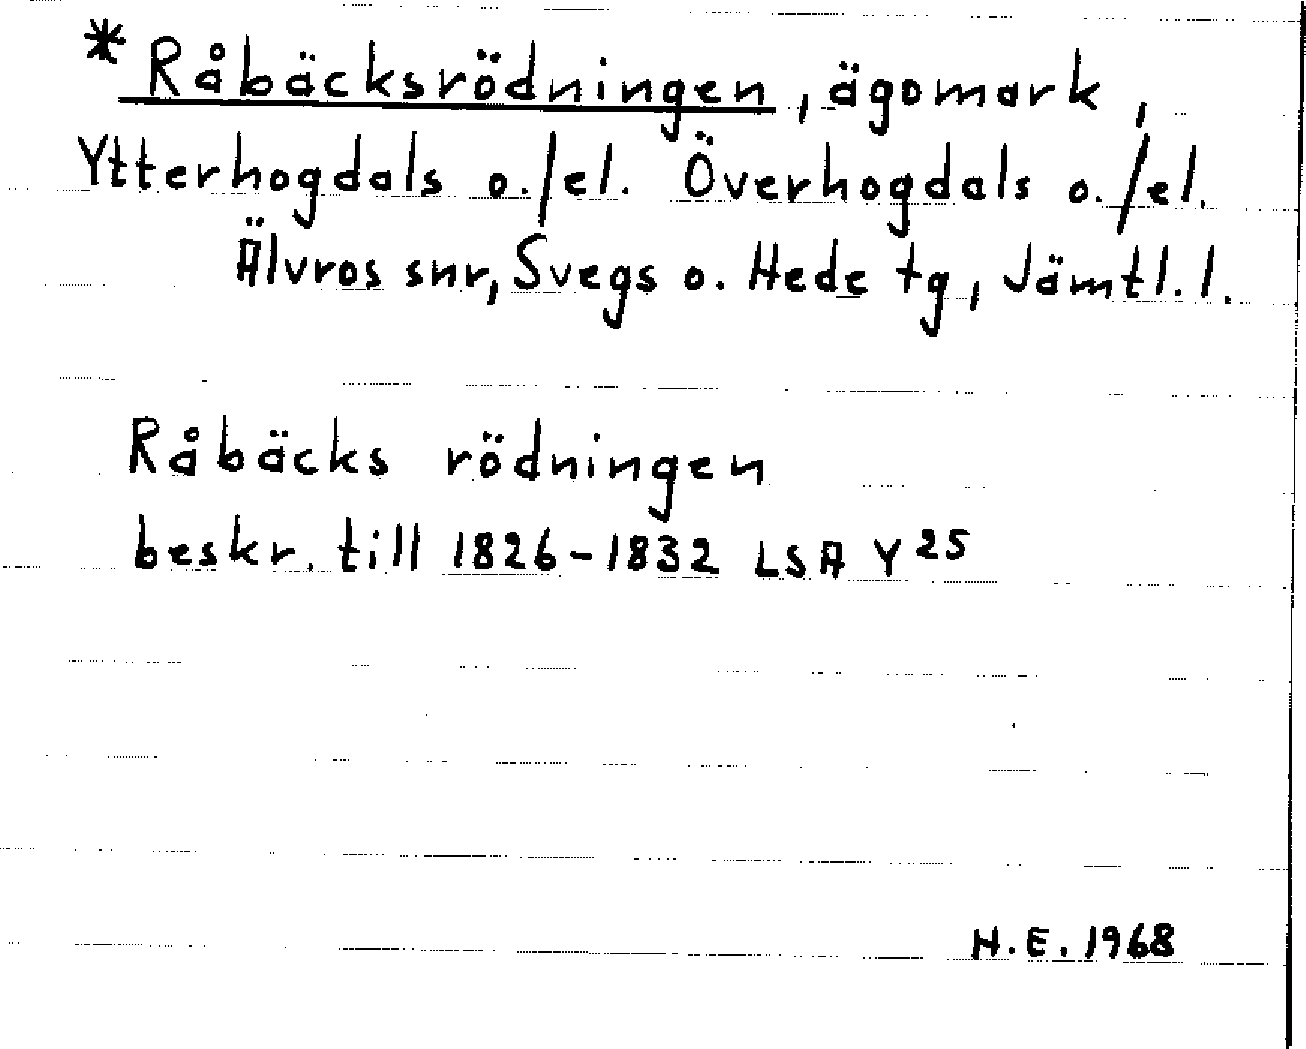 * Råbäcksrödningen, ägomark,
Ytterhogdals o./el. Överhogdals o./el.
Älvros snr, Svegs o. Hede tg, Jämtl. l.
Råbäcks rödningen
beskr. till 1826-1832 LSA Y 25
H.E. 1968